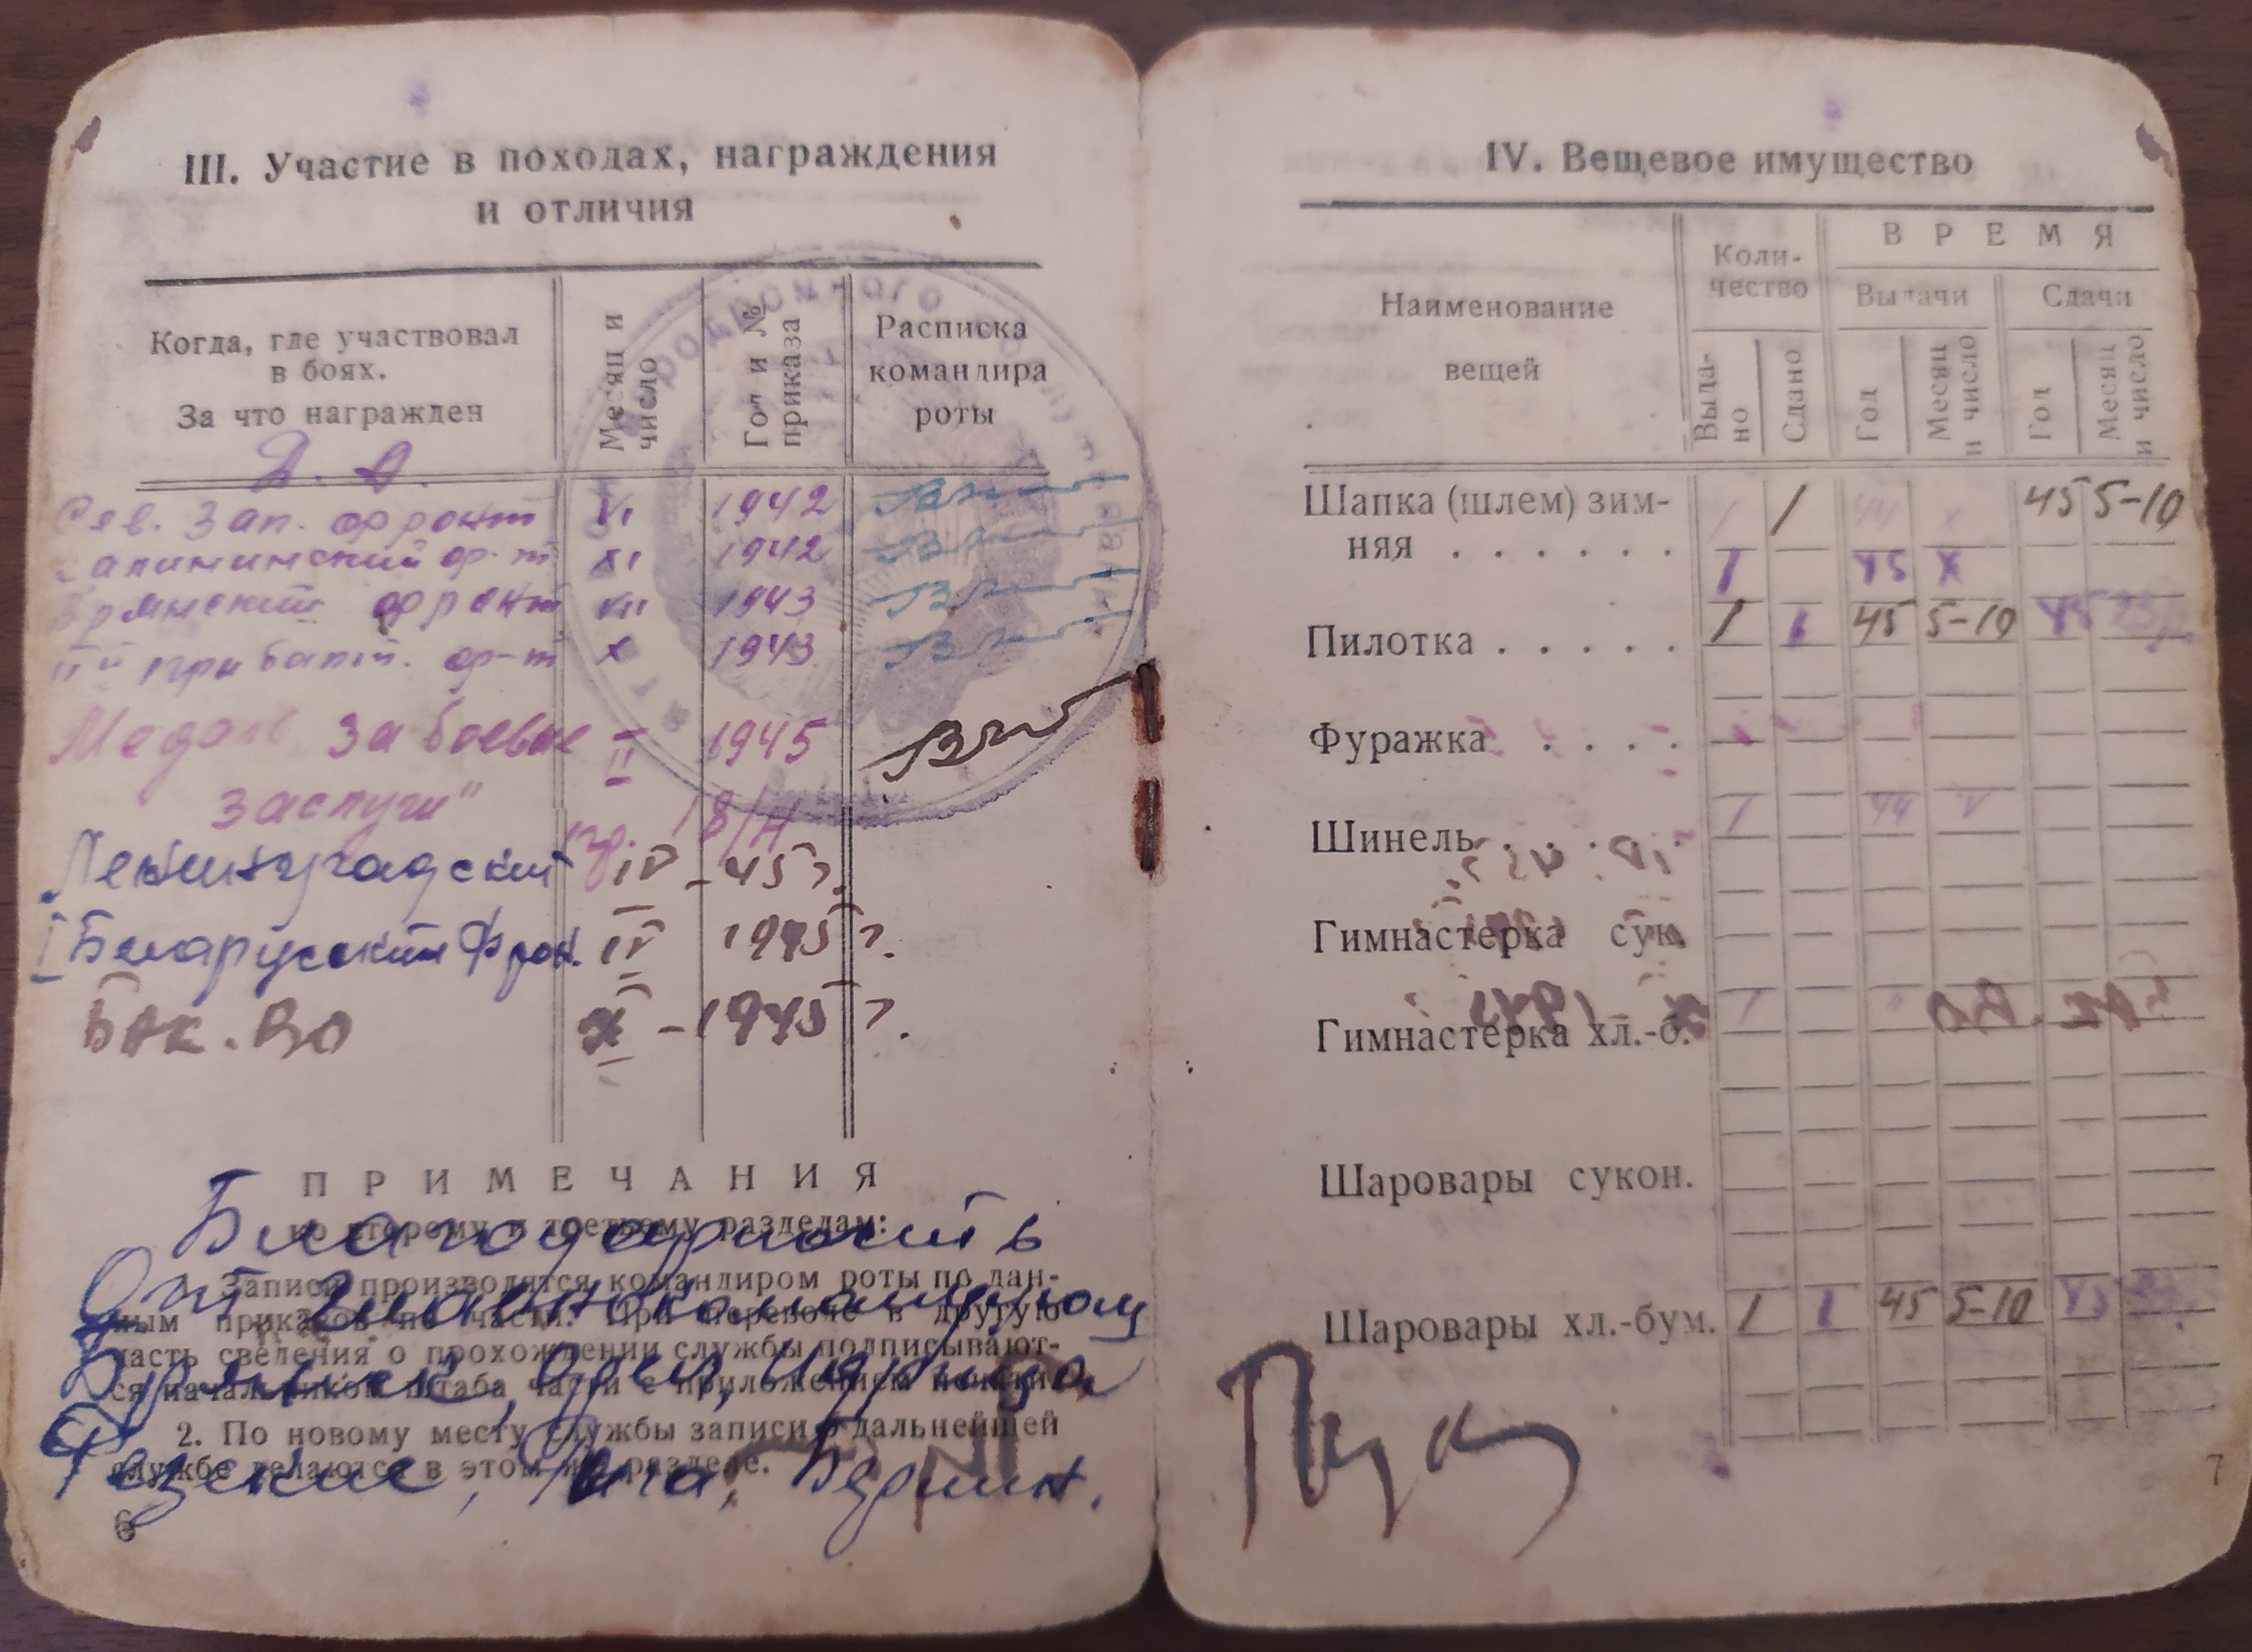 III. Участие в походах, награждения
и отличия
Когда, где участвовал
в боях.
За что награжден
Месяц и
число
Год и №
приказа
Расписка
командира
роты
Д. А.
Сев. Зап. фронт VI 1942
Калининский ф-т XI 1942
Брянский фронт VII 1943
II й прибалт. ф-т X 1943
Медаль "За боевые II 1945
заслуги" пр. 18/Н
Ленинградский IV - 45 г.
I Беларусский Фрон. IV 1945 г.
Бак. ВО X - 1945 г.
ПРИМЕЧАНИЯ
ко второму и третьему разделам:
Благодарность
1. Записи производятся командиром роты по дан-
От
ным приказов по части. При переводе в другую
часть сведения о прохождении службы подписывают-
Брянск, Орел, Идрица
ся начальником штаба части с приложением печати.
2. По новому месту службы записи о дальнейшей
службе делаются в этом же разделе.
Резекне, Рига, Берлин.
6
IV. Вещевое имущество
Наименование
вещей
Коли-
чество
ВРЕМЯ
Выдачи
Сдачи
Выда-
но
Сдано
Год
Месяц
и число
Год
Месяц
и число
Шапка (шлем) зим- 1 1 44 X 45 5-10
няя . . . . . . 1 45 X
Пилотка . . . . . 1 1 45 5-10 45
Фуражка . . . .
Шинель . . . . 1 44 V
Гимнастерка сук.
Гимнастерка хл.-б. 1 "
Шаровары сукон.
Шаровары хл.-бум. 1 1 45 5-10 45
7